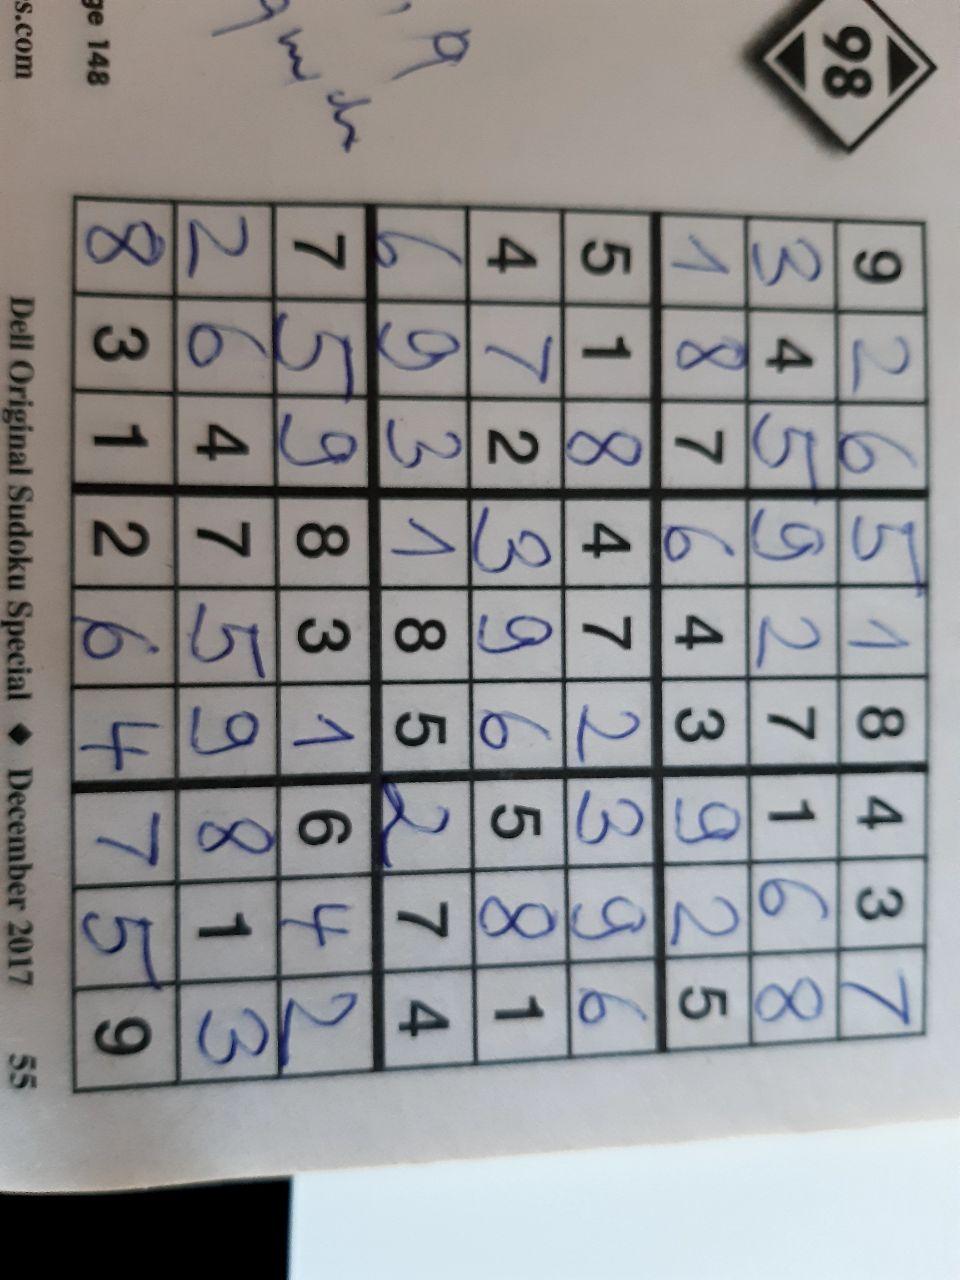 98
9 2 6 5 1 8 4 3 7
3 4 5 9 2 7 1 6 8
1 8 7 6 4 3 9 2 5
5 1 8 4 7 2 3 9 6
4 7 2 3 9 6 5 8 1
6 9 3 1 8 5 2 7 4
7 5 9 8 3 1 6 4 2
2 6 4 7 5 9 8 1 3
8 3 1 2 6 4 7 5 9
148
Dell Original Sudoku Special ♦ December 2017 55